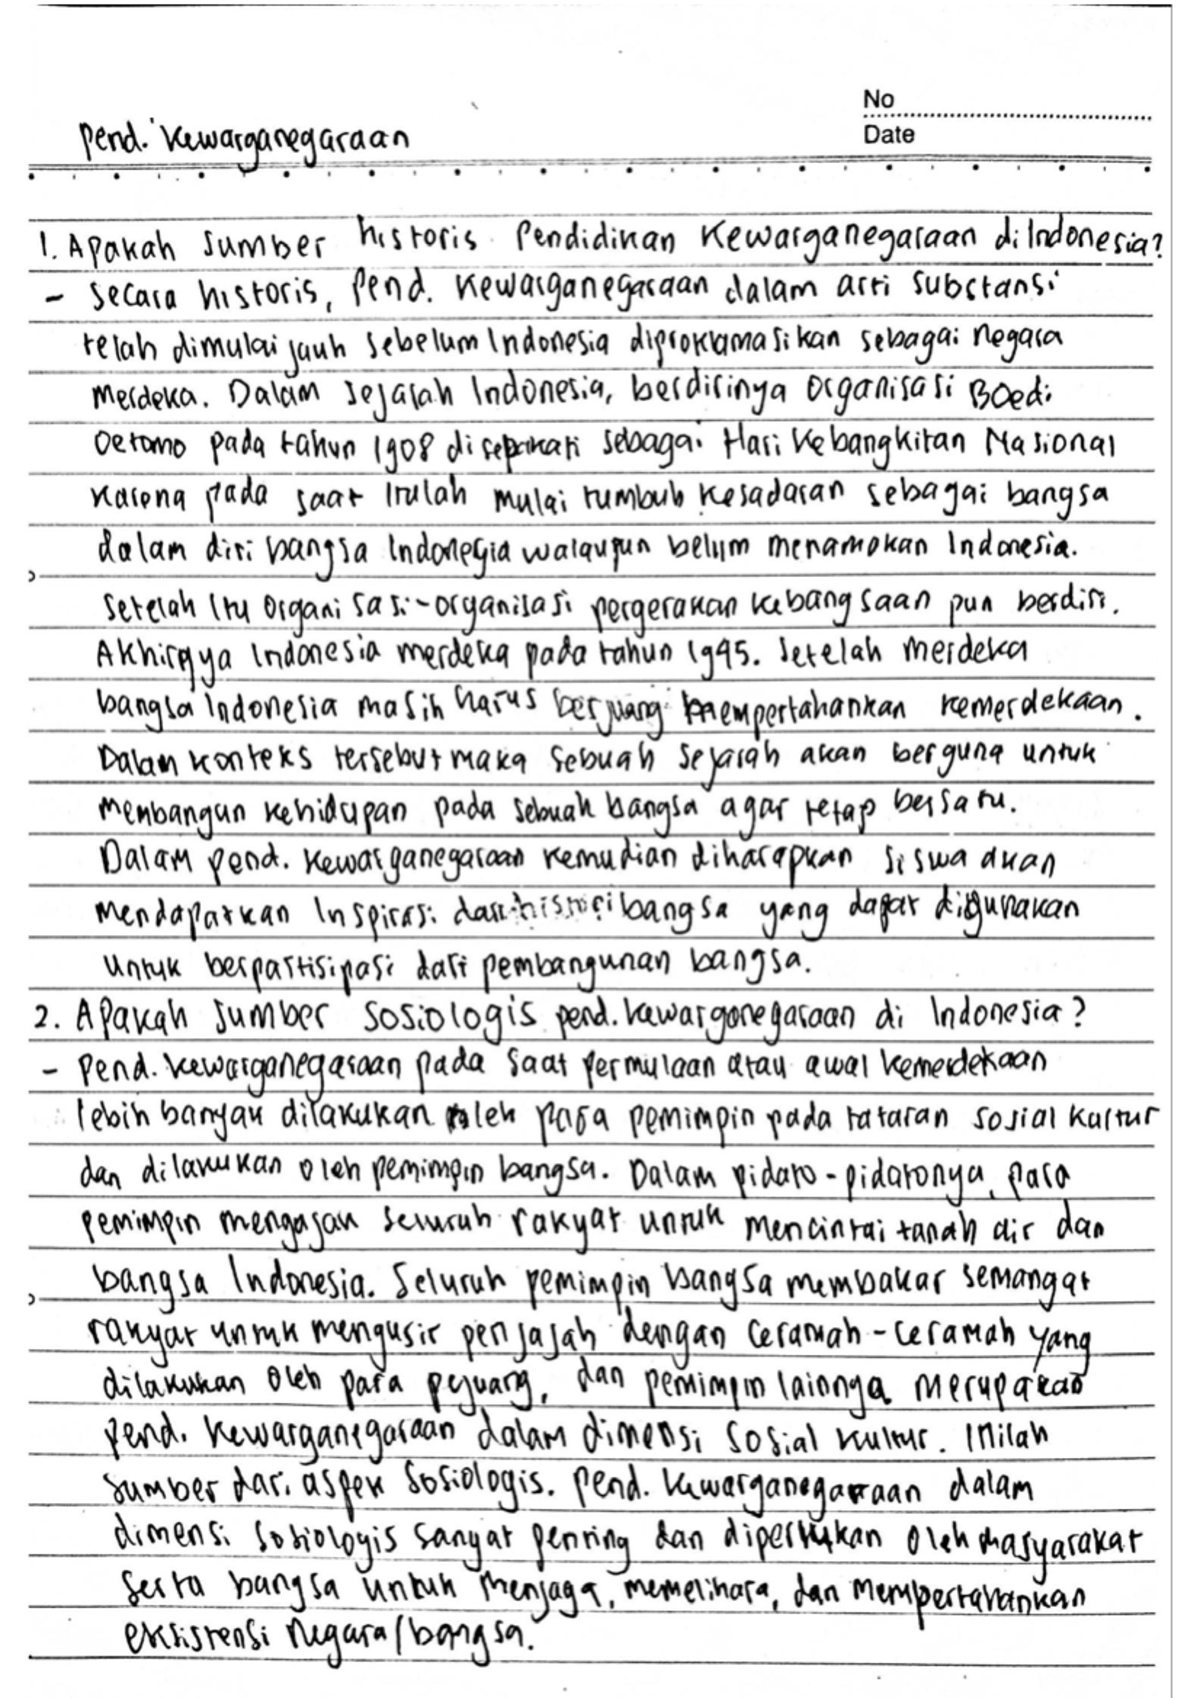 No
Date
Pend. Kewarganegaraan
1. Apakah sumber historis Pendidikan Kewarganegaraan di Indonesia?
- Secara historis, Pend. Kewarganegaraan dalam arti substansi
telah dimulai jauh sebelum Indonesia diproklamasikan sebagai negara
Merdeka. Dalam sejarah Indonesia, berdirinya organisasi Boedi
Oetomo pada tahun 1908 disepakati sebagai Hari Kebangkitan Nasional
karena pada saat itulah mulai tumbuh kesadaran sebagai bangsa
dalam diri bangsa Indonesia walaupun belum menamakan Indonesia.
Setelah itu organisasi-organisasi pergerakan kebangsaan pun berdiri.
Akhirnya Indonesia merdeka pada tahun 1945. Setelah merdeka
bangsa Indonesia masih harus berjuang mempertahankan kemerdekaan.
Dalam konteks tersebut maka sebuah sejarah akan berguna untuk
membangun kehidupan pada sebuah bangsa agar tetap bersatu.
Dalam pend. Kewarganegaraan kemudian diharapkan siswa akan
mendapatkan inspirasi dari histori bangsa yang dapat digunakan
untuk berpartisipasi dari pembangunan bangsa.
2. Apakah sumber sosiologis pend. kewarganegaraan di Indonesia?
- Pend. kewarganegaraan pada saat permulaan atau awal kemerdekaan
lebih banyak dilakukan oleh para pemimpin pada tataran sosial kultur
dan dilakukan oleh pemimpin bangsa. Dalam pidato-pidatonya, para
pemimpin mengajak seluruh rakyat untuk mencintai tanah air dan
bangsa Indonesia. Seluruh pemimpin bangsa membakar semangat
rakyat untuk mengusir penjajah dengan ceramah-ceramah yang
dilakukan oleh para pejuang, dan pemimpin lainnya merupakan
pend. Kewarganegaraan dalam dimensi sosial kultur. Inilah
sumber dari aspek sosiologis. Pend. Kewarganegaraan dalam
dimensi sosiologis sangat penting dan diperlukan oleh masyarakat
serta bangsa untuk menjaga, memelihara, dan mempertahankan
eksistensi negara/bangsa.